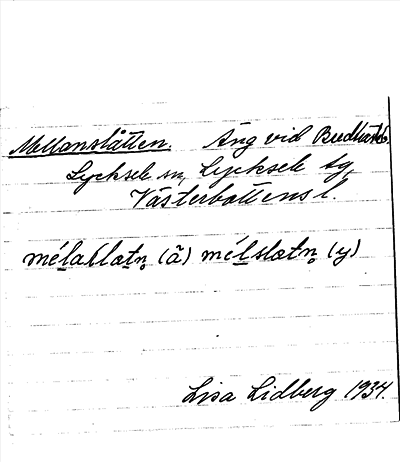 Mellanslåtten. Äng vid
Lycksele sn, Lycksele tg,
Västerbottens l.
mélaslætn̥ (ä) mélslætn̥ (y)
Lisa Lidberg 1934.